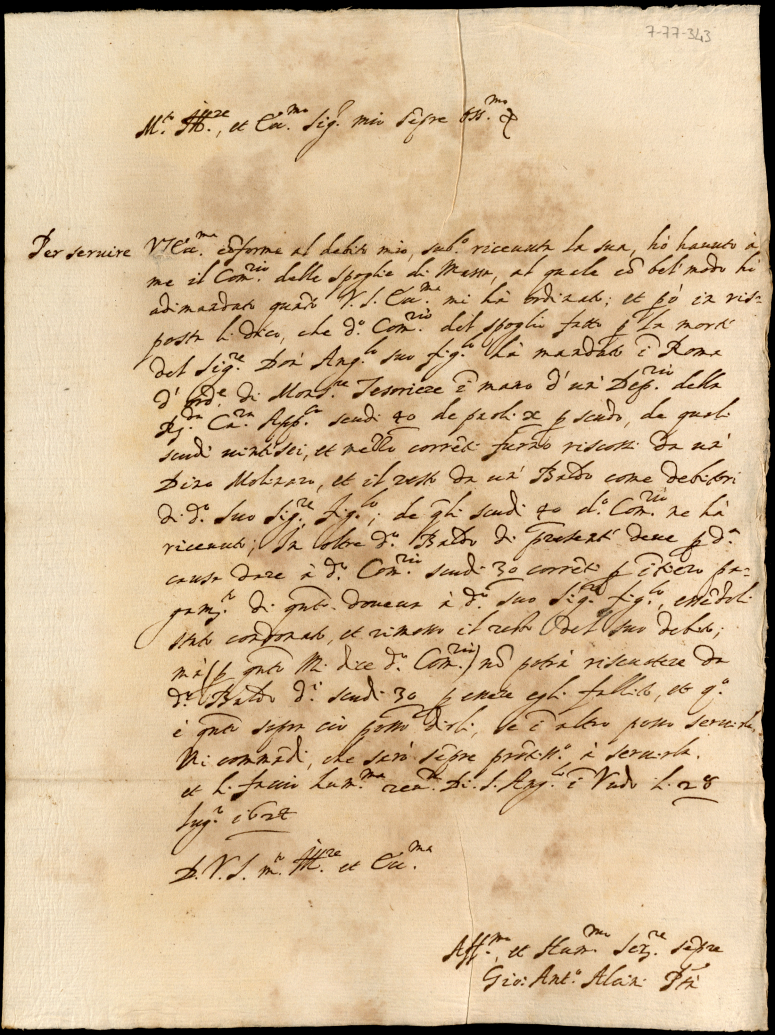 7-77-343
M.to Ill.re, et Ecc.mo Sig.r mio sẽpre oss.mo
Per seruire V S Ecc.ma cõforme al debito mio, sub.o riceuuta la sua, hò hauuto à
me il Com.rio delle spoglie di Massa, al quale cõ bel modo hò
adimandato quãto V.S. Ecc.ma mi hà ordinato; et p̃ò in ris=
posta li dico, che d.o Com.rio del spoglio fatto p̃ la morte
del Sig.re Don Ang.lo suo fig.lo hà mandato ĩ Roma
d'ord.e di Mons.re Tesoriere ĩ mano d'un' Dep.rio della
R.da Ca.ra App.ca scudi 40 de paoli x p̃ scudo, de quali
scudi uintisei, et mezzo correti furno riscossi da un'
Dino Molinaro, et il resto da un' Baldo come debitori
di d.o suo Sig.re fig.lo; de q̃li scudi 40 d.o Com.rio ne hà
riceuuto; In oltre d.o Baldo di p̃senti deue p̃ d.a
causa dare à d.o Com.rio scudi 30 corrẽti p̃ ĩtiero pa=
gam.to di q̃nto doueua à d.o suo Sig.re fig.lo, essẽdoli
stato condonato, et rimesso il resto del suo debito;
mà (p̃ q̃nto mi dice d.o Com.rio) nõ potrà riscuotere da
d.o Baldo d.i scudi 30 p̃ essere egli fallito, et q.o
è q̃nto sopra ciò posso dirli, se ĩ altro posso seruirla
Mi commãdi, che sarò sẽpre prõtiss.o à seruirla.
et li faccio hum.ma reu.a Di S. Ang.lo ĩ Vado li 28
Lug.o 1628
D. V. S. m.to Ill.re et Ecc.ma
Aff.mo, et Hum.mo Ser.re sẽpre
Gio: Ant.o